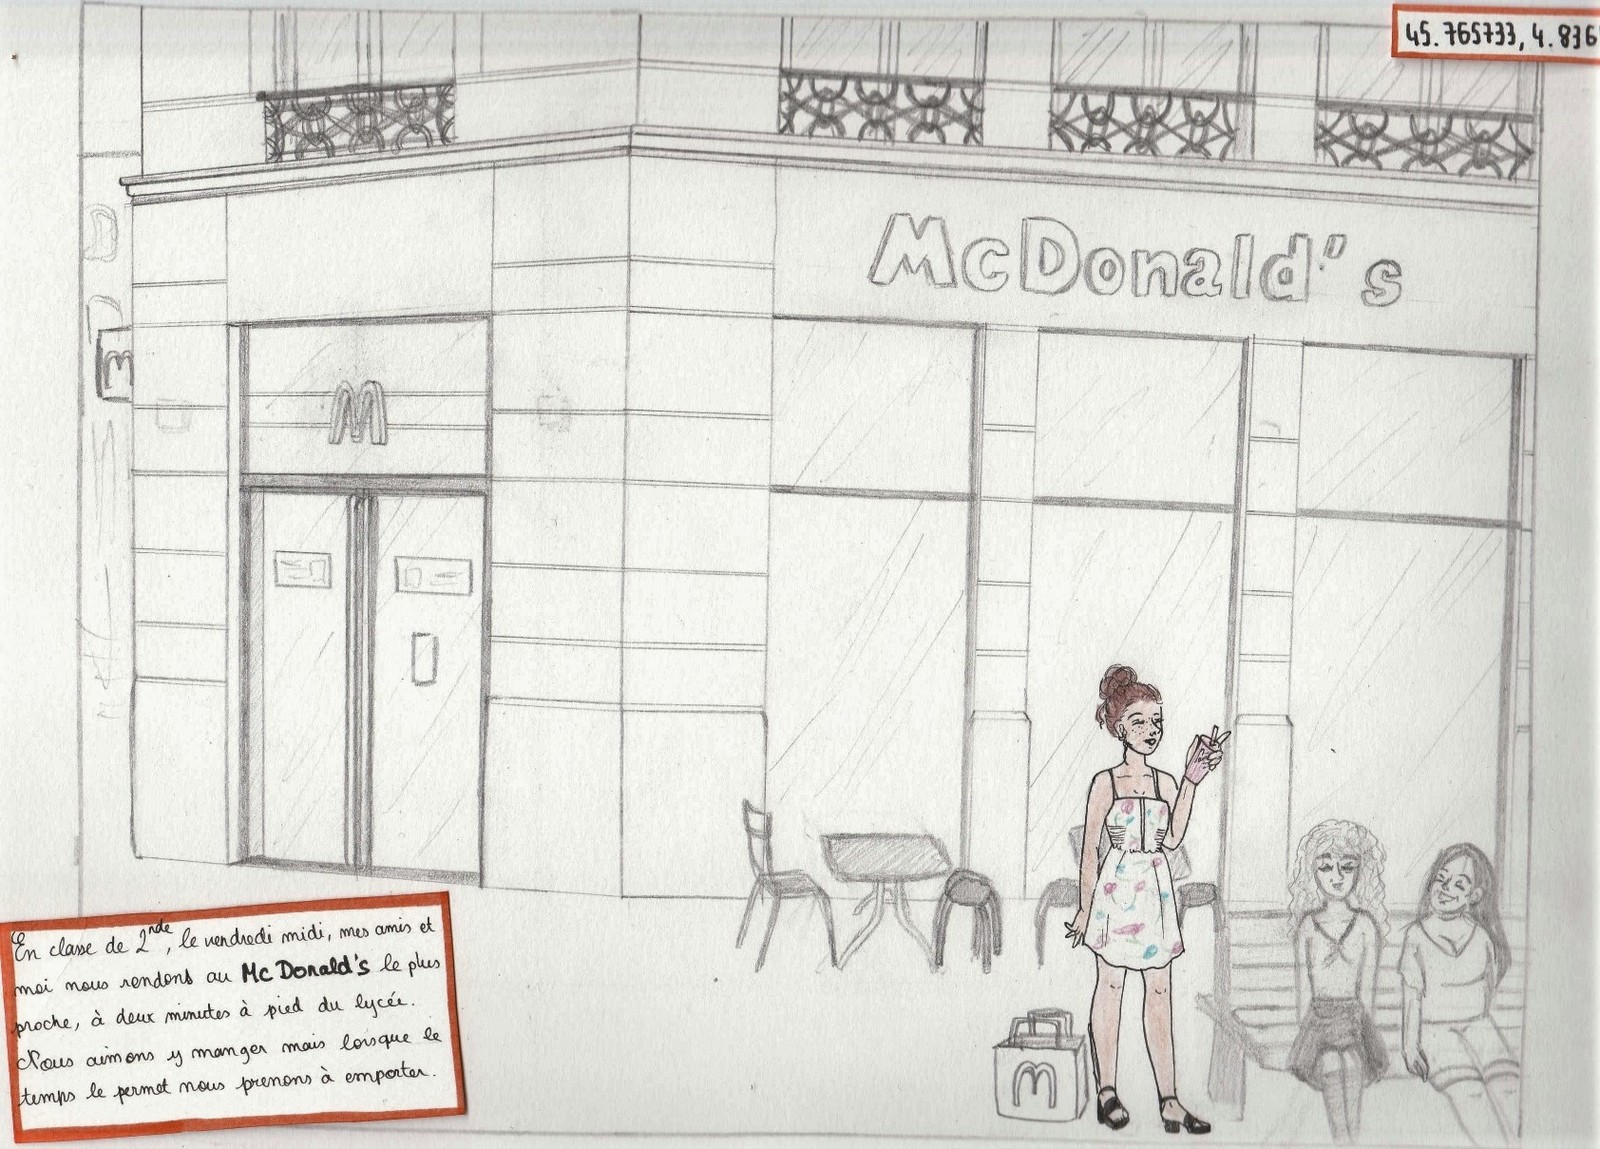 45.765733, 4.836
McDonald's
M
M
En classe de 2nde, le vendredi midi, mes amis et
moi nous rendons au Mc Donald's le plus
proche, à deux minutes à pied du lycée.
Nous aimons y manger mais lorsque le
temps le permet nous prenons à emporter.
M